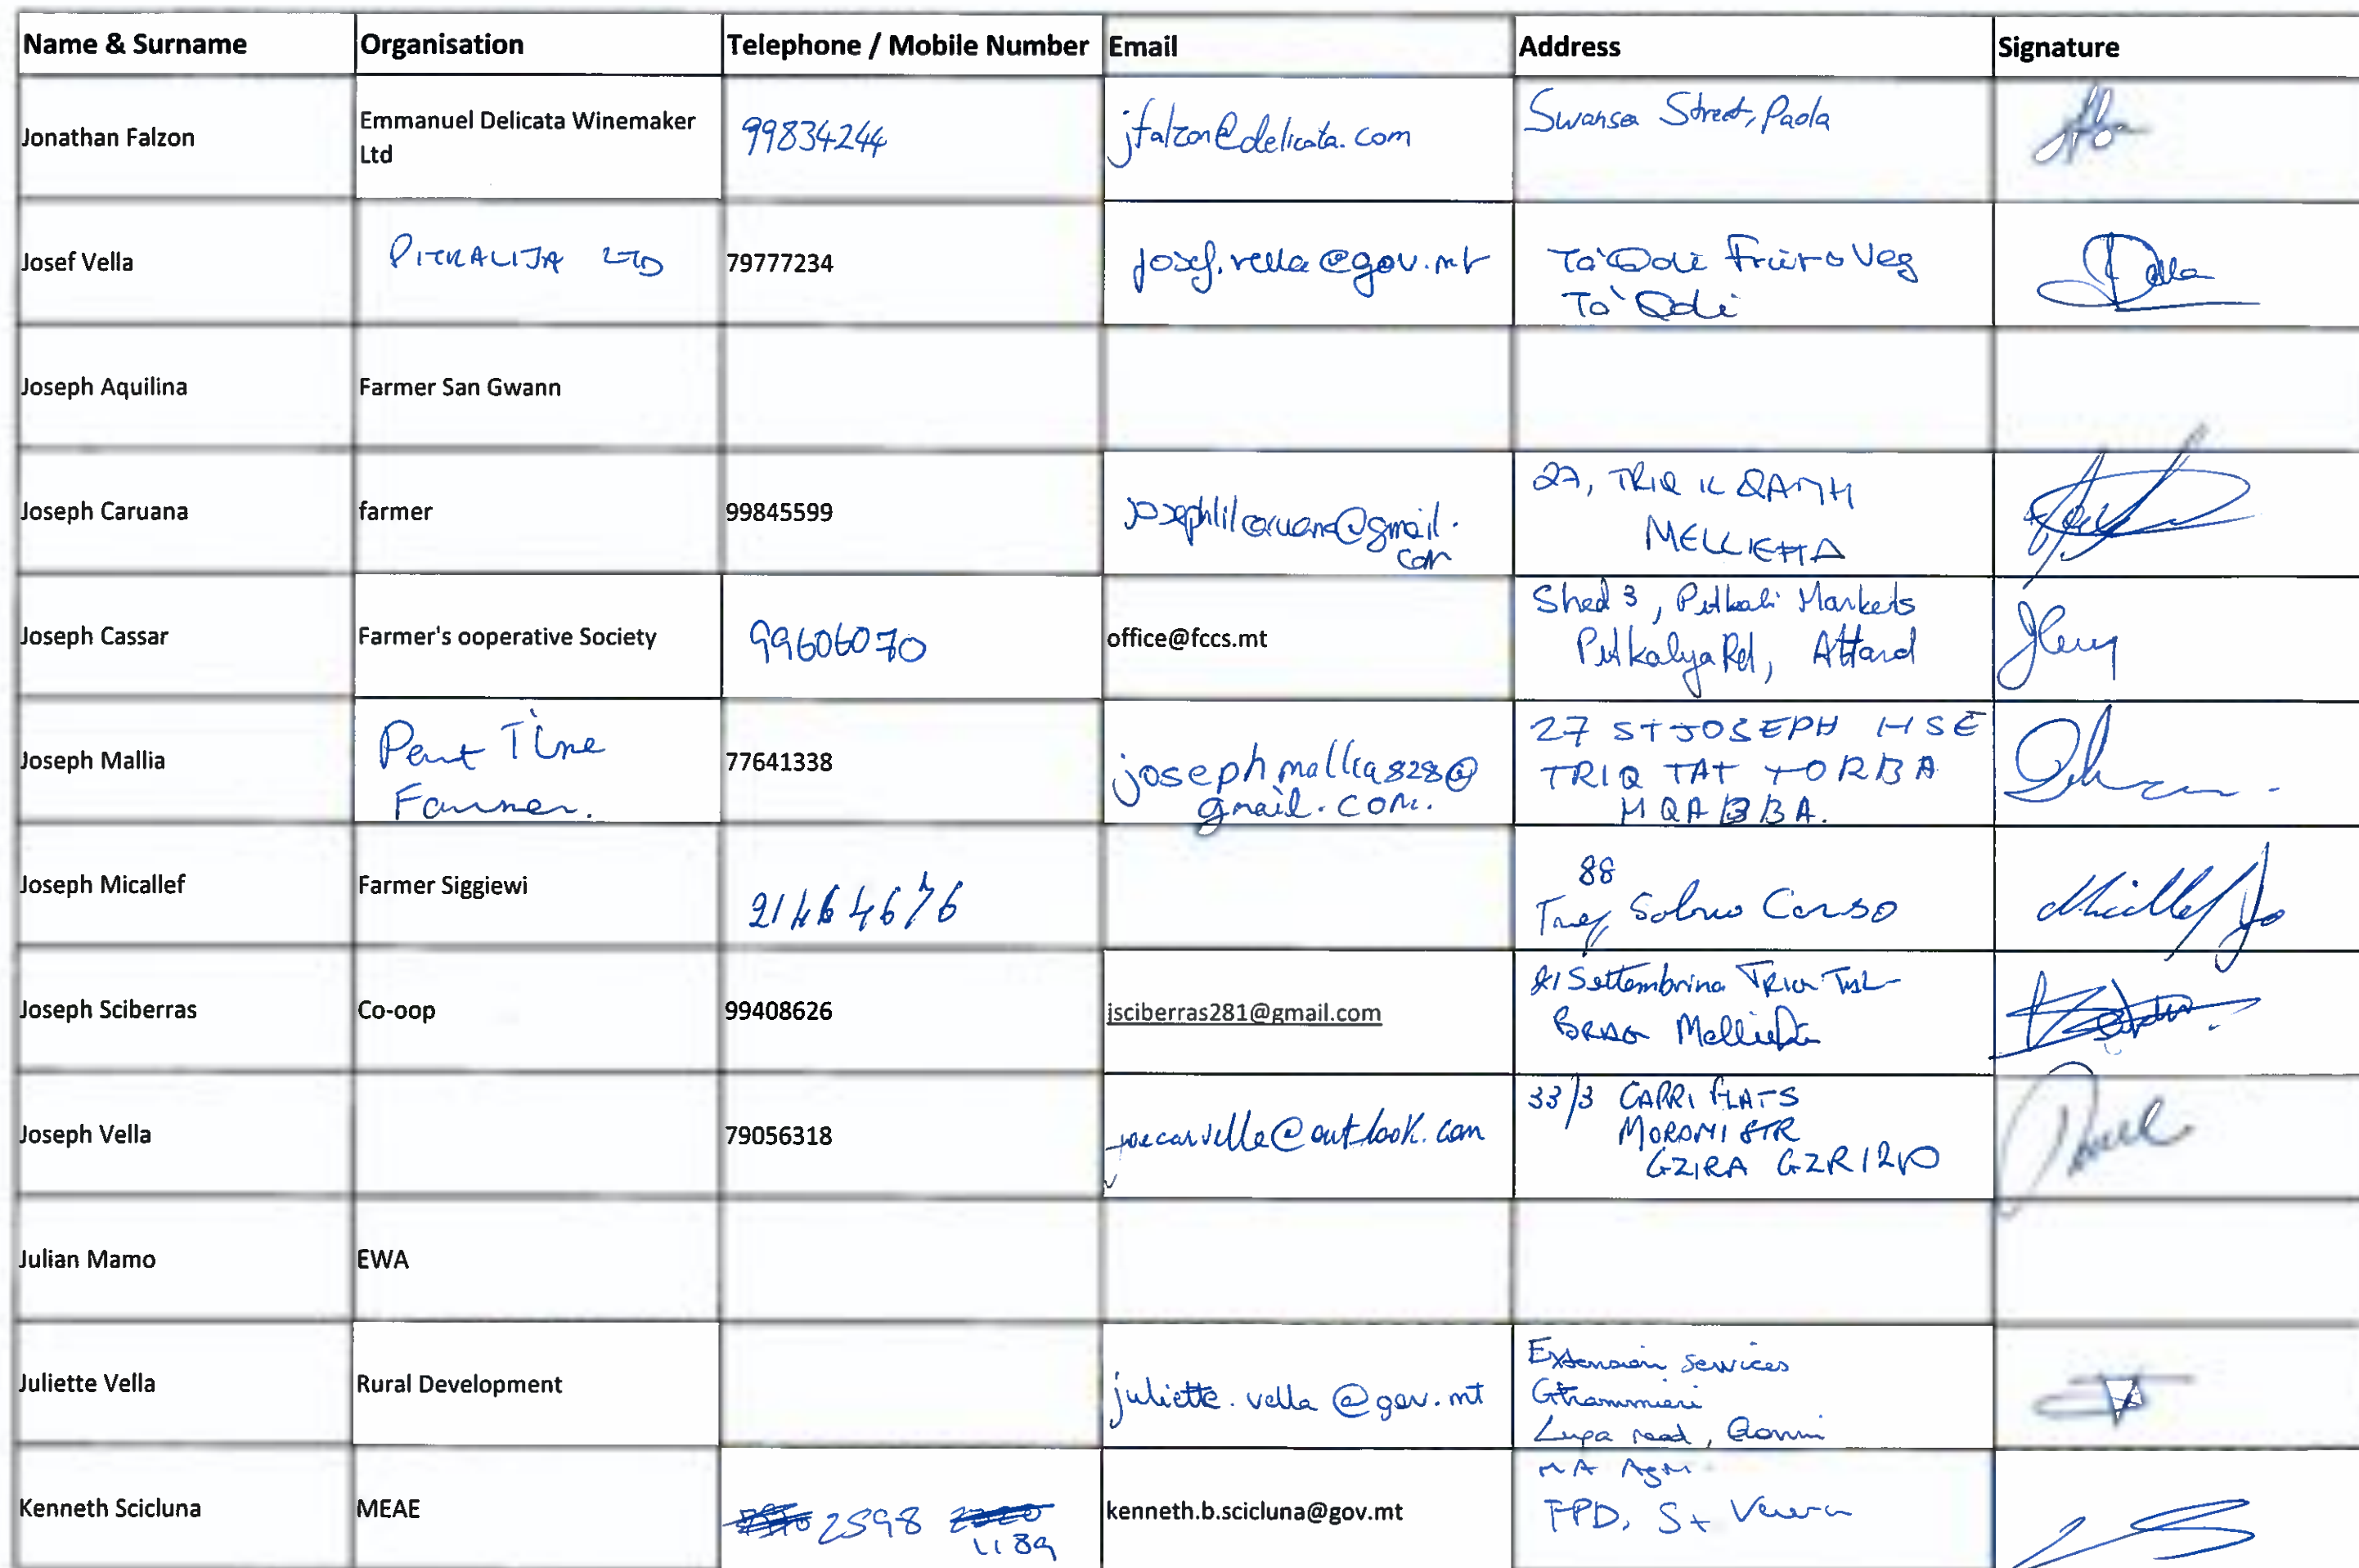 Name & Surname Organisation Telephone / Mobile Number Email Address Signature
Jonathan Falzon Emmanuel Delicata Winemaker Ltd 99834244 jfalzon@delicata.com Swansea Street, Paola
Josef Vella PITKALIJA LTD 79777234 josef.vella@gov.mt Ta'Qali Fruit & Veg
Ta'Qali
Joseph Aquilina Farmer San Gwann
Joseph Caruana farmer 99845599 27, TRIQ IL QAMH
MELLIEĦA
Joseph Cassar Farmer's ooperative Society 99606070 office@fccs.mt Shed 3, Pitkali Markets
Pitkalya Rd, Attard
Joseph Mallia Part Time
Farmer. 77641338 josephmallia828@
gmail.com. 27 ST JOSEPH HSE
TRIQ TAT TORBA
MQABBA.
Joseph Micallef Farmer Siggiewi 21464676 88
Triq Corso
Joseph Sciberras Co-oop 99408626 jsciberras281@gmail.com Settembrina TRIQ
Mellieħa
Joseph Vella 79056318 joecarvella@outlook.com 33/3 CAPRI FLATS
MORONI STR
GZIRA
Julian Mamo EWA
Juliette Vella Rural Development juliette.vella@gov.mt Extension services
Għammieri
Lupa road, Qormi
Kenneth Scicluna MEAE 2598
kenneth.b.scicluna@gov.mt MA Agri.
FPD, St